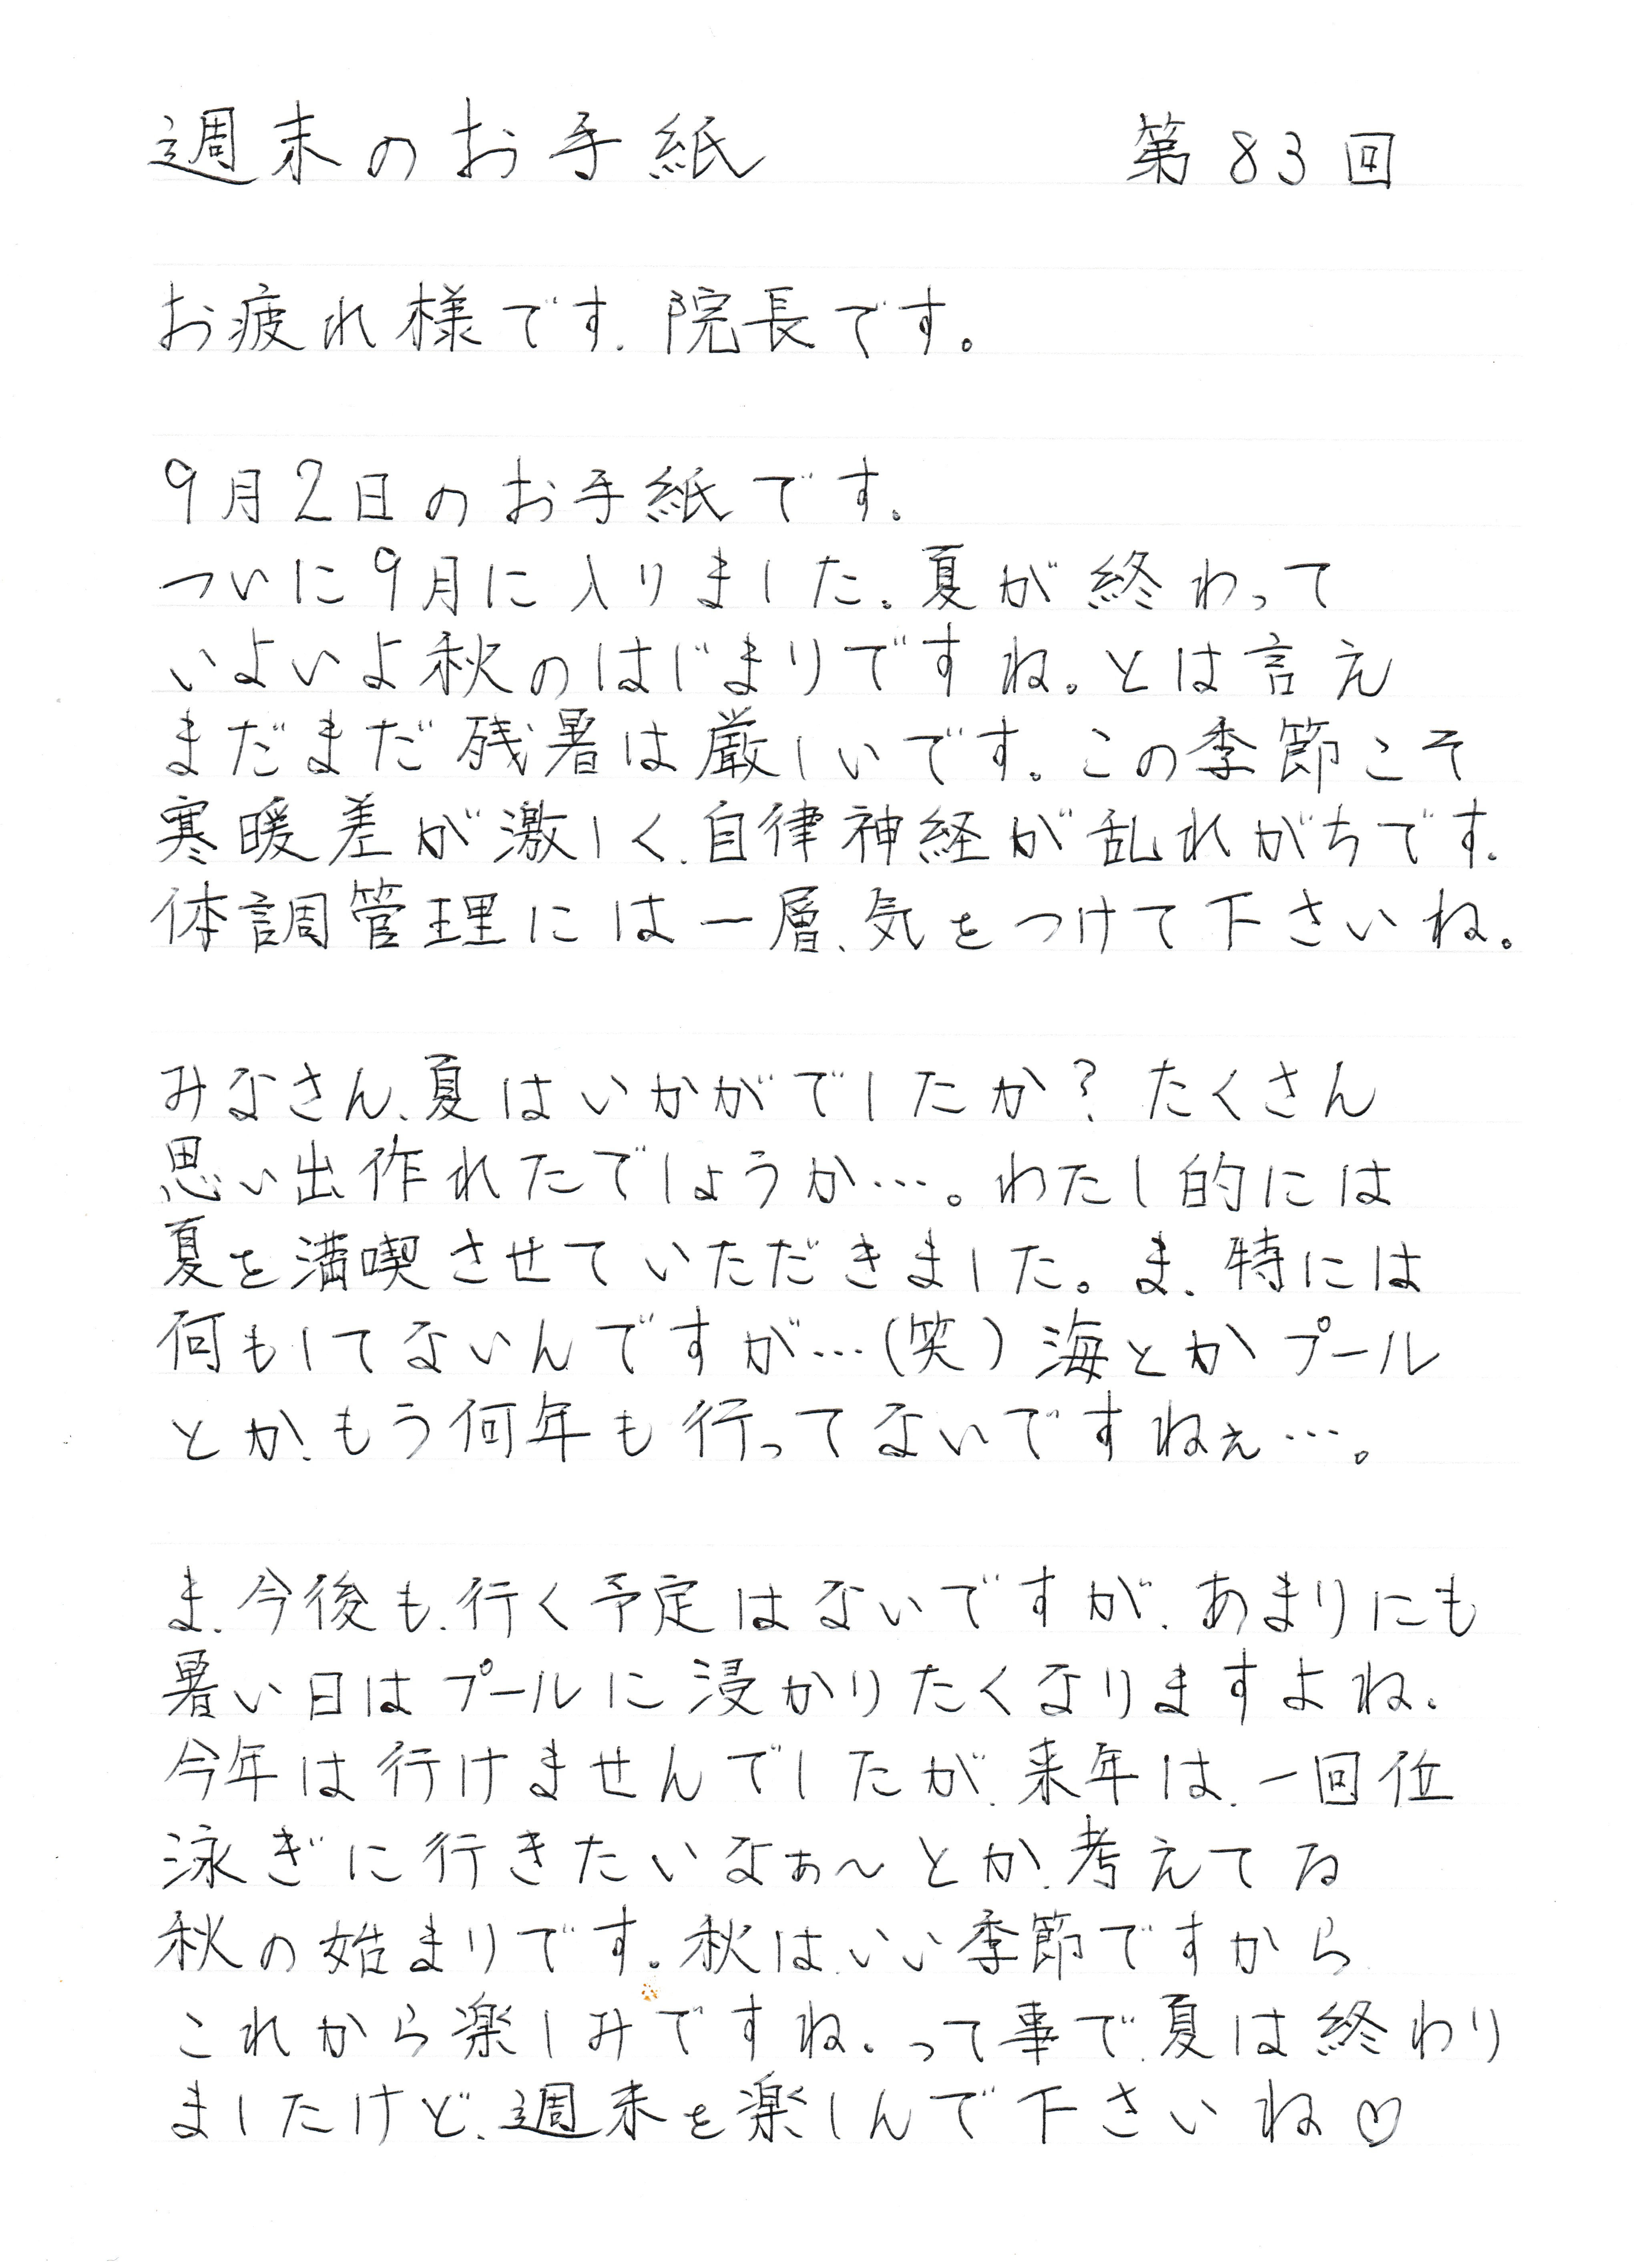 週末のお手紙 第83回
お疲れ様です、院長です。
9月2日のお手紙です。
ついに9月に入りました。夏が終わって
いよいよ秋のはじまりですね。とは言え
まだまだ残暑は厳しいです。この季節こそ
寒暖差が激しく、自律神経が乱れがちです。
体調管理には一層、気をつけて下さいね。
みなさん、夏はいかがでしたか？たくさん
思い出作れたでしょうか…。わたし的には
夏を満喫させていただきました。ま、特には
何もしてないんですが…(笑)海とかプール
とか、もう何年も行ってないですねぇ…。
ま、今後も、行く予定はないですが、あまりにも
暑い日はプールに浸かりたくなりますよね。
今年は行けませんでしたが、来年は、一回位
泳ぎに行きたいなぁ〜とか、考えてる
秋の始まりです。秋は、いい季節ですから
これから楽しみですね。って事で、夏は終わり
ましたけど、週末を楽しんで下さいね♡